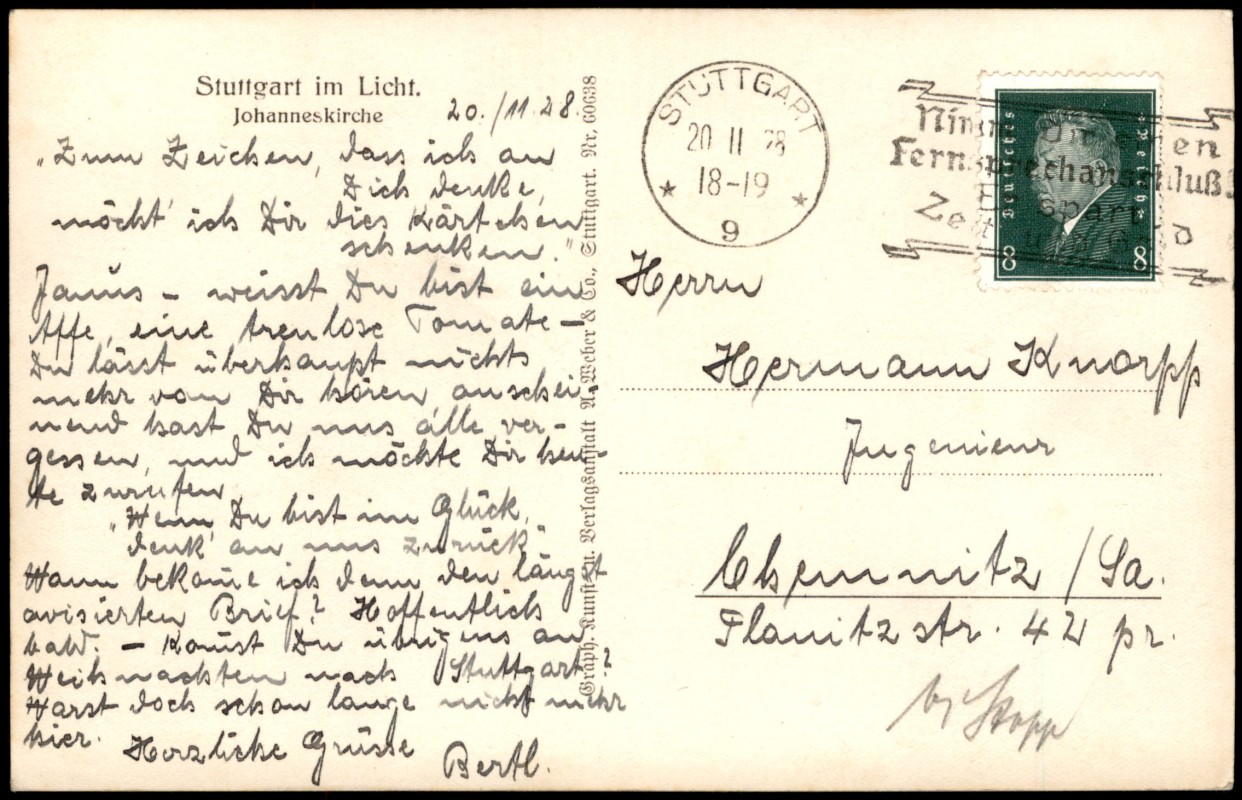 Stuttgart im Licht.
Johanneskirche
20./11.28.
"Zum Zeichen, dass ich an
Dich denke,
möcht' ich Dir dies Kärtchen
schenken."
— weisst Du bist ein
Affe, eine treulose Tomate –
Du lässt überhaupt nichts
mehr von Dir hören, anschei-
nend hast Du uns alle ver-
gessen, und ich möchte Dir heu-
te zurufen
"Wenn Du bist im Glück,
denk' an uns zurück"
Wann bekome ich denn den längst
avisierten Brief? Hoffentlich
bald. – Komst Du übrigens an
Weihnachten nach Stuttgart?
Warst doch schon lange nicht mehr
hier. Herzliche Grüsse
Bertl.
Graph. Kunst- u. Verlagsanstalt A. Weber & Co., Stuttgart. Nr. 60638
STUTTGART
20 11 28
18-19
9
Nimm Dir einen
Fernsprechanschluß!
Er spart
Zeit und Geld
Deutsches Reich
8 8
Herrn
Hermann Knorpp
Ingenieur
Chemnitz /Sa.
Planitzstr. 42 pr.
b/ Stopp